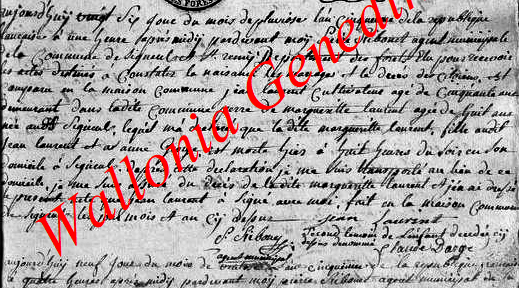 aujourd'huy vingt Six jour du mois de pluviose l'an Cinquieme de la republique
francaise a une heure apres midy pardevant moy pierre Sibenet agent municipale
de la Commune de Signeulx et St remy Departement des forets Elu pour recevoir
les actes destinés a Constater la naissance les mariages et le deces des Citoiens, est
Comparu en la maison Commune jean laurent Cultivateur agé de Cinquante ans
demeurant dans ladite Commune de margueritte laurent agée de huit ans
née audit Signeul, lequel ma declaré que ladite marguerite laurent, fille audit
jean laurent et a anne morte hier a huit heures du soir en Son
domicile a Signeul Dapres cette declaration je me suis transporté au lieu de ce
domicile, je me Suis assuré du deces de ladite marguerite laurent et j'en ai dressé
le present acte que jean laurent a Signé avec moi, fait en la maison Commune
de Signeul les jour mois et an cy dessus
jean laurent
P Sibenet
agent municipal
Second temoin de l'enfant decedee cy
dessus denommé
Claude Darge
aujourd'huy neuf jour du mois de l'an Cinquieme de la republique francaise
a quatre heures apres midy pardevant moy pierre Sibenet agent municipal de la
Wallonia Genealogie